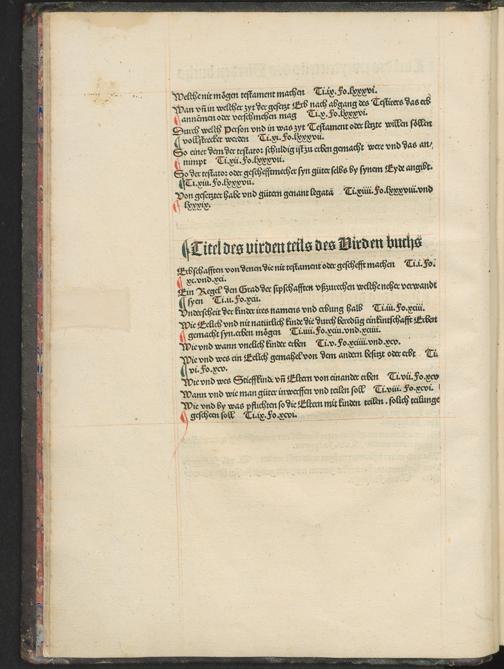 Welche nit mögen testament machen Ti.ix. Fo.lxxxvi.
Wan vñ in welcher zyt der gesetzt Erb nach abgang des Testirers das erb
annemen oder verschmehen mag Ti.x. Fo.lxxxvi.
Durch welch Person vnd in was zyt Testament oder letzte willen söllen
vollstrecket werden Ti.xi. Fo.lxxxvii.
So einer dem der testator schuldig ist zu erben gemacht were vnd das an/
nimpt Ti.xii. Fo.lxxxvii.
So der testator oder gescheftmecher syn güter selbs by synem Eyde angibt.
Ti.xiii. Fo.lxxxvii.
Von gesetzter habe vnd gütern genant legata Ti.xiiii. Fo.lxxxviii.vnd
lxxxix.
Titel des virden teils des Virden buchs
Erbschafften von denen die nit testament oder geschefft machen Ti.i. Fo.
xc.vnd.xci.
Ein Regel den Grad der sipschafften vßzurechen welche neher verwandt
syen Ti.ii. Fo.xcii.
Vnderscheit der kinder ires namens vnd erbung halb Ti.iii. Fo.xciii.
Wie Eelich vnd nit natürlich kinde die durch beredüg einkinschafft Erben
gemacht syn.erben mögen Ti.iiii. Fo.xciii.vnd.xciiii.
Wie vnd wann vnelich kinder erben Ti.v. Fo.xciiii.vnd.xcv.
Wie vnd wes ein Eelich gemahel von dem andern besitzt oder erbt Ti.
vi. Fo.xcv.
Wie vnd wes Stieffkind vñ Eltern von einander erben Ti.vii. Fo.xcv
Wann vnd wie man güter inwerffen vnd teilen soll Ti.viii. Fo.xcvi.
Wie vnd by was pflichten so die Eltern mit kinden teilen . solich teilunge
gescheen soll Ti.ix. Fo.xcvi.